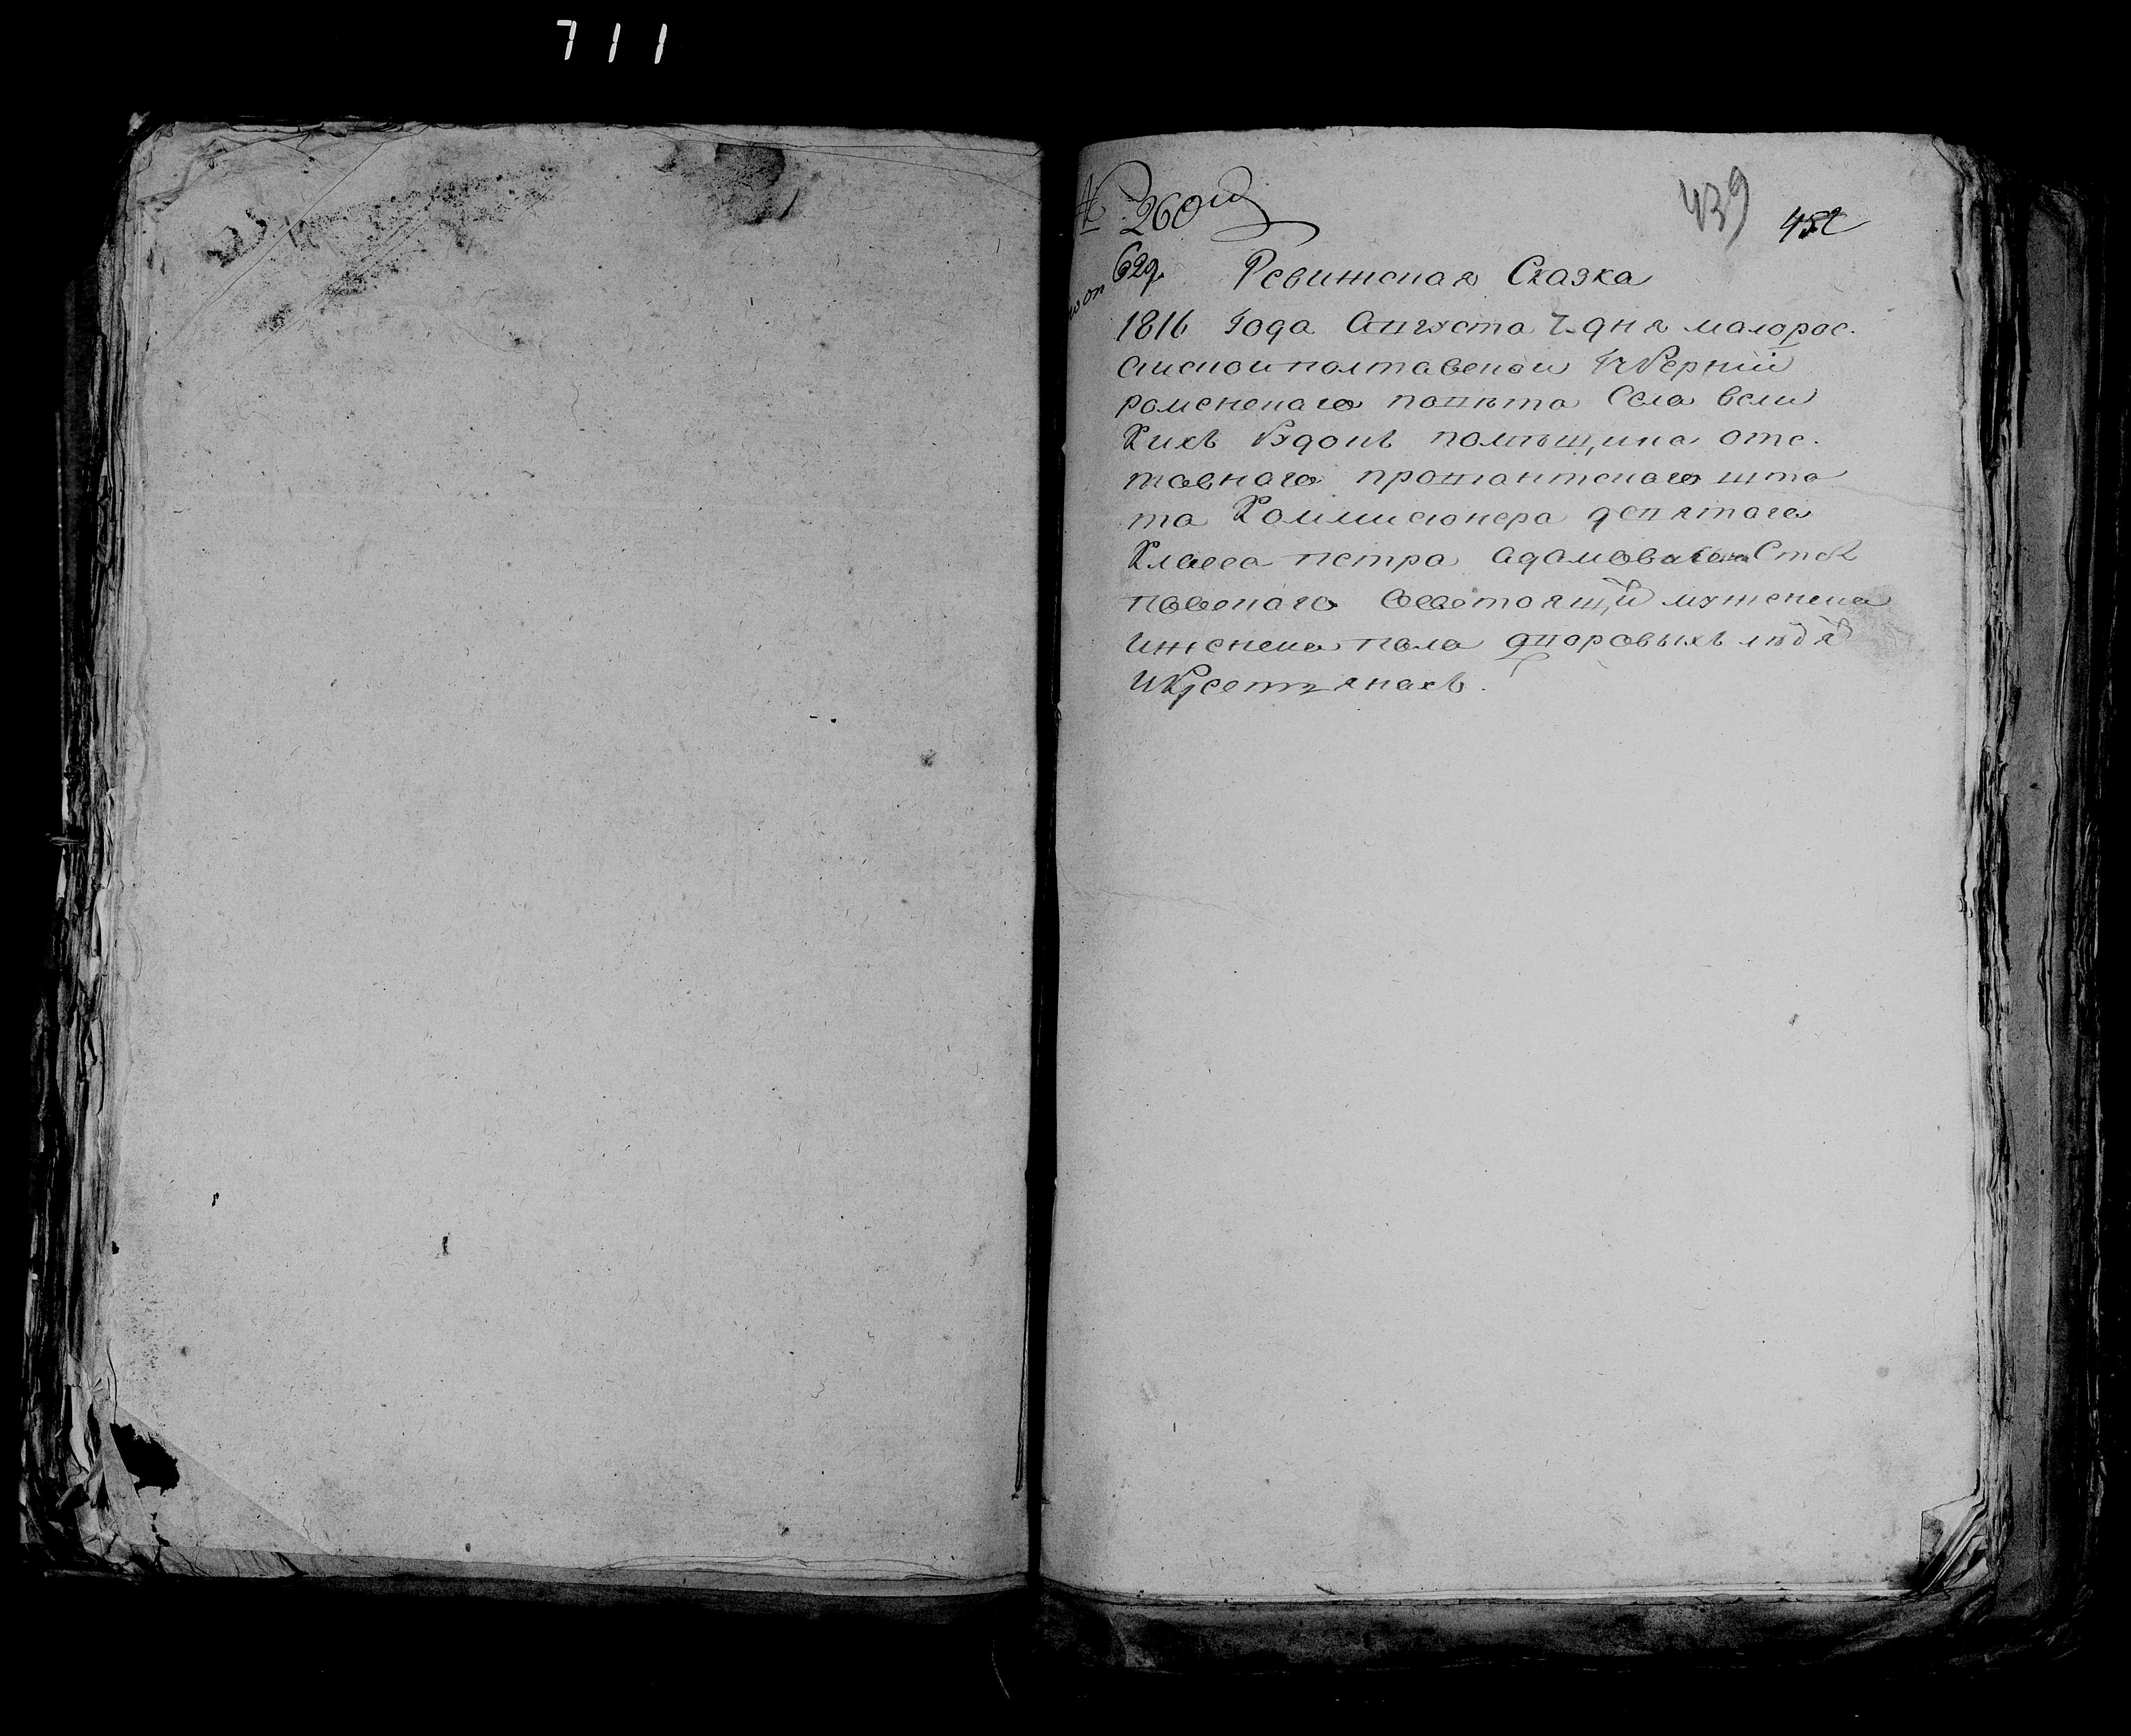 711
439 452
№ 260й
629.
Ревижская Сказка
1816 Года Августа 7 дня малорос.
сийской полтавской Губерніи
роменскаго повѣта Села вели
Кихъ Будокъ помѣщика отс.
тавнаго провиантскаго шта
та Коммисионера девятаго
Класса петра адамова сына
повскаго Состоящий мужеска
Иженска пола дворовыхъ людя
И Крестьянахъ.